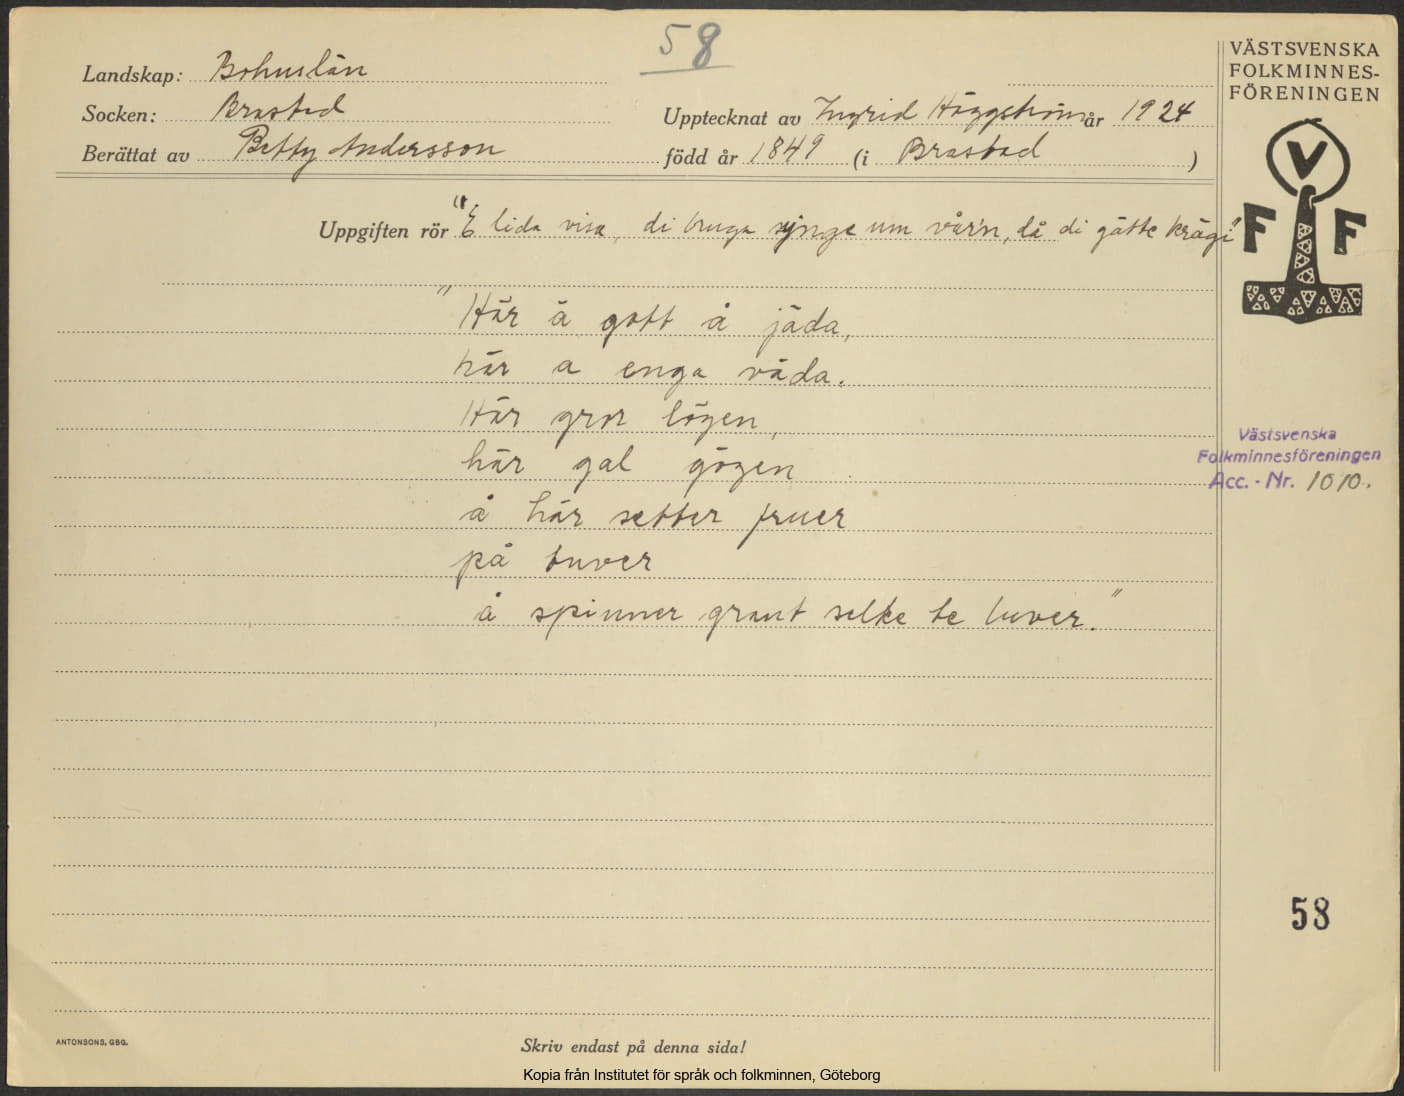 58
Landskap: Bohuslän
Socken: Brastad
Upptecknat av Ingrid Häggström år 1924
Berättat av Betty Andersson
född år 1849 (i Brastad )
VÄSTSVENSKA
FOLKMINNES-
FÖRENINGEN
V
F F
Uppgiften rör "E lida visa, di bruga sjynge um vår'n, då di gätte krägi"
"Här ä gott å jäda,
här a enga våda.
Här gror lögen,
här gal gögen
å här setter fruer
på tuver
å spinner grant selke te luver."
Västsvenska
Folkminnesföreningen
Acc.-Nr. 1010.
58
ANTONSONS, GBG.
Skriv endast på denna sida!
Kopia från Institutet för språk och folkminnen, Göteborg